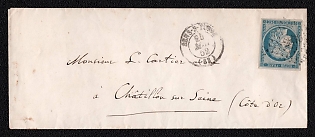 Monsieur L. Cartier
à Châtillon sur Seine (Côte d'Or)